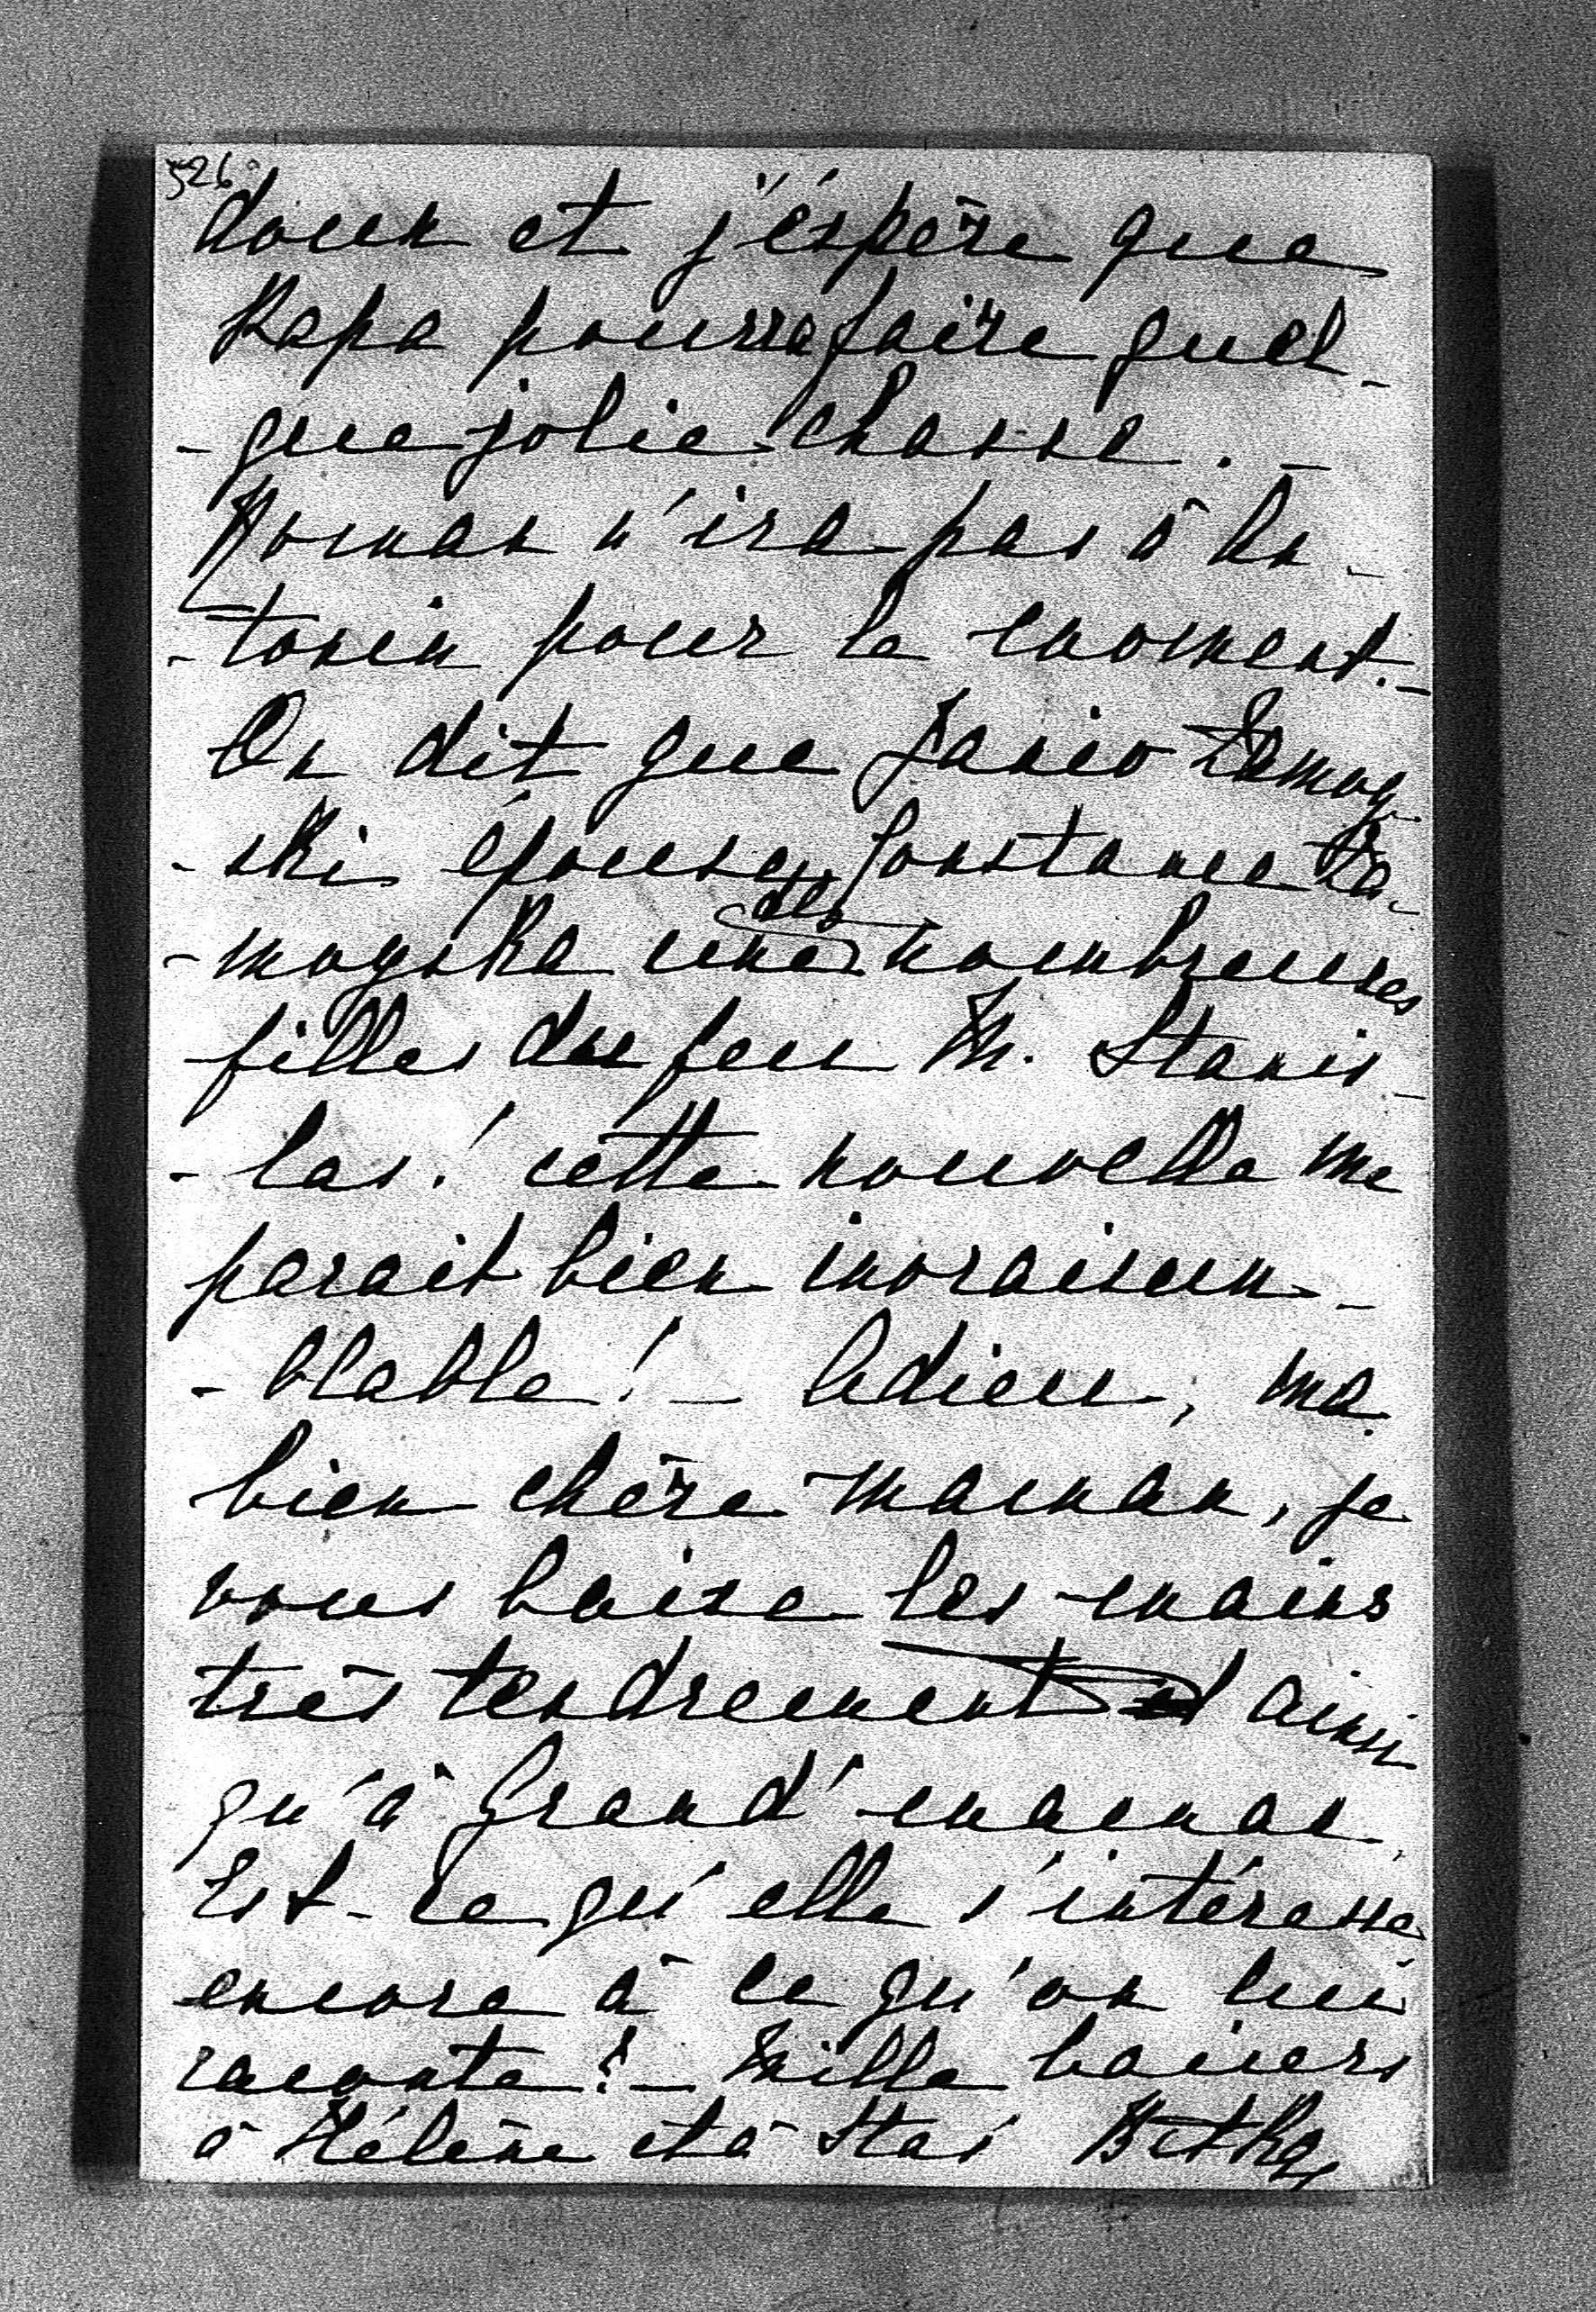 526
doux et j'éspère que
Papa pourra faire quel-
-que jolie chasse. -
Roman n'ira pas à An-
-tonin pour le moment. -
On dit que Janio Zamoy-
-ski épouse Constance Za-
-moyska une des nombreuses
filles du feu M. Stanis-
-las! cette nouvelle me
parait bien invraisem-
-blable! - Adieu, ma
bien chère Maman, je
vous baise les mains
très tendrement et ainsi
qu'à Grand'maman.
Est-ce qu'elle s'intéresse
encore à ce qu'on lui
raconte? - Mille baisers
à Hélène et à Stas Bichka